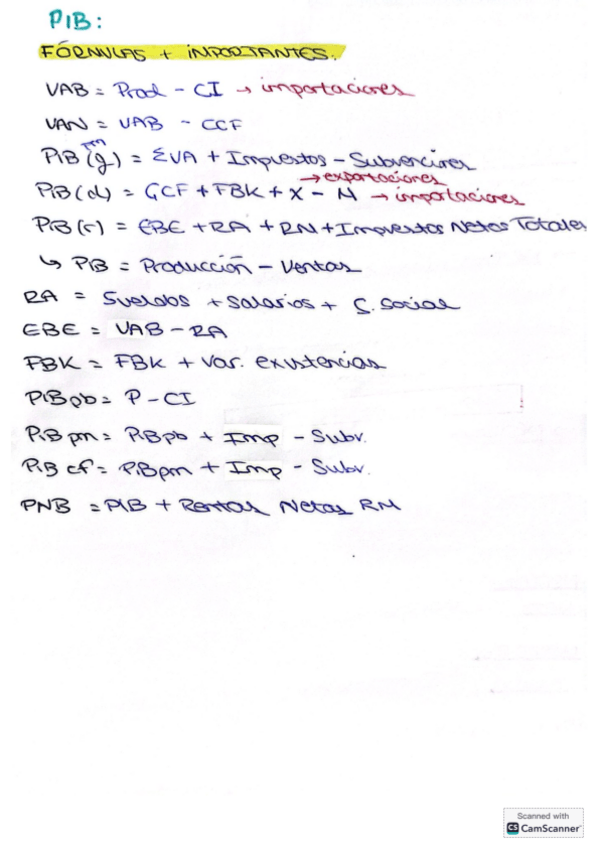 PIB:
FÓRMULAS + IMPORTANTES.
VAB = Prod - CI → importaciones
VAN = VAB - CCF
PIB pm (g) = ΣVA + Impuestos - Subvenciones
→ exportaciones
PIB (d) = GCF + FBK + X - M → importaciones
PIB (r) = EBE + RA + RN + Impuestos Netos Totales
↳ PIB = Producción - Ventas
RA = Sueldos + Salarios + S. Social
EBE = VAB - RA
FBK = FBK + Var. existencias
PIB pb = P - CI
PIB pm = PIB pb + Imp - Subv.
PIB cf = PIB pm + Imp - Subv.
PNB = PIB + Rentas Netas RM
Scanned with
CS CamScanner